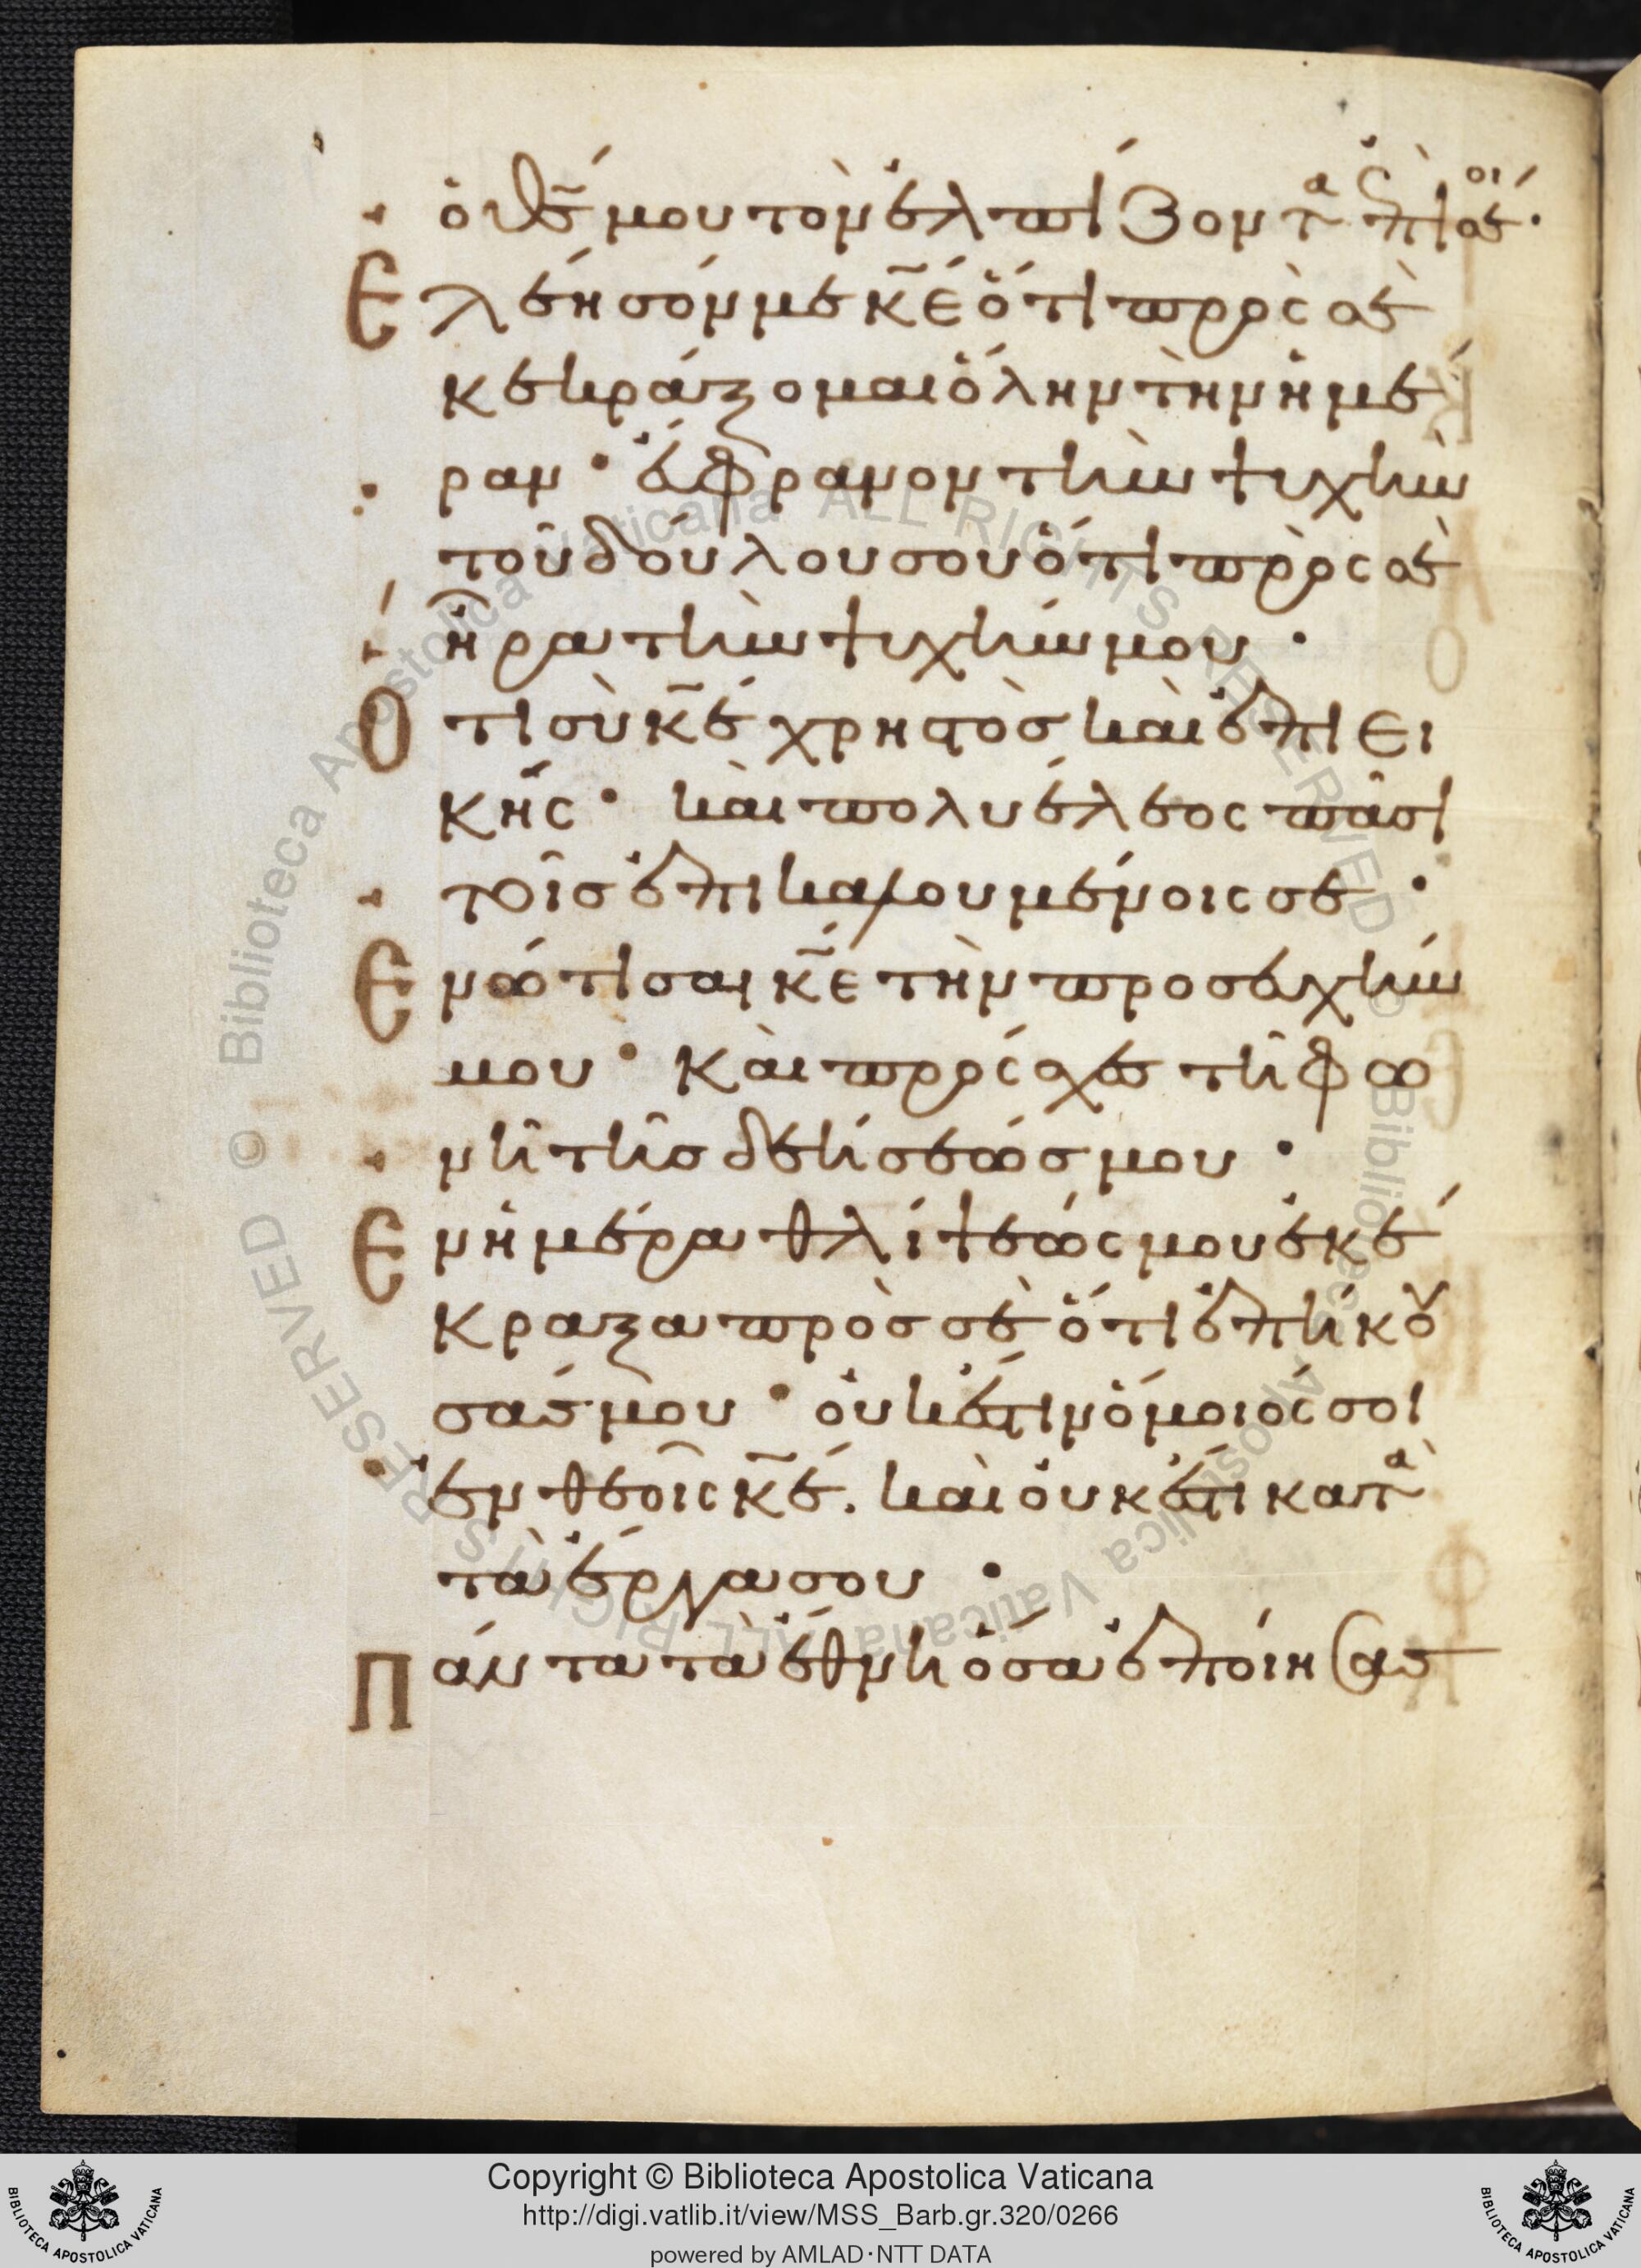 ὁ θ̅ς̅ μου τὸν ἐλπίζοντα ἐπὶ σοί ·
Ἐλέησόν με κ̅ε̅ ὅτι πρὸς σὲ
κεκράξομαι ὅλην τὴν ἡμέ
ραν · εὔφρανον τὴν ψυχὴν
τοῦ δούλου σου ὅτι πρὸς σὲ
ἦρα τὴν ψυχήν μου ·
Ὅτι σὺ κ̅ε̅ χρηστὸσ καὶ ἐπιει
κής · καὶ πολυέλεος πᾶσι
τοῖσ ἐπικαλουμένοις σε ·
Ἐνώτισαι κ̅ε̅ τὴν προσευχήν
μου · καὶ πρόσχες τῆ φω
νῆ τῆσ δεήσεώσ μου ·
Ἐν ἡμέρα θλίψεώς μου ἐκέ
κραξα πρὸσ σὲ ὅτι ἐπήκου
σάς μου · οὐκ ἔστιν ὅμοιός σοι
ἐν θεοῖς κ̅ε̅ . καὶ οὐκ ἔστι κατὰ
τὰ ἔργα σου ·
Πάντα τὰ ἔθνη ὅσα ἐποίησας
Biblioteca Apostolica Vaticana ALL RIGHTS RESERVED ©
Biblioteca Apostolica Vaticana ALL RIGHTS RESERVED ©
BIBLIOTECA APOSTOLICA VATICANA
Copyright © Biblioteca Apostolica Vaticana
http://digi.vatlib.it/view/MSS_Barb.gr.320/0266
powered by AMLAD·NTT DATA
BIBLIOTECA APOSTOLICA VATICANA